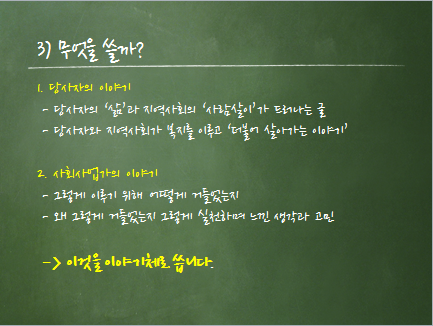 3) 무엇을 쓸까?
1. 당사자의 이야기
- 당사자의 '삶'과 지역사회의 '사람살이'가 드러나는 글
- 당사자와 지역사회가 복지를 이루고 '더불어 살아가는 이야기'
2. 사회사업가의 이야기
- 그렇게 이루기 위해 어떻게 거들었는지
- 왜 그렇게 거들었는지 그렇게 실천하며 느낀 생각과 고민
-> 이것을 이야기체로 씁니다.